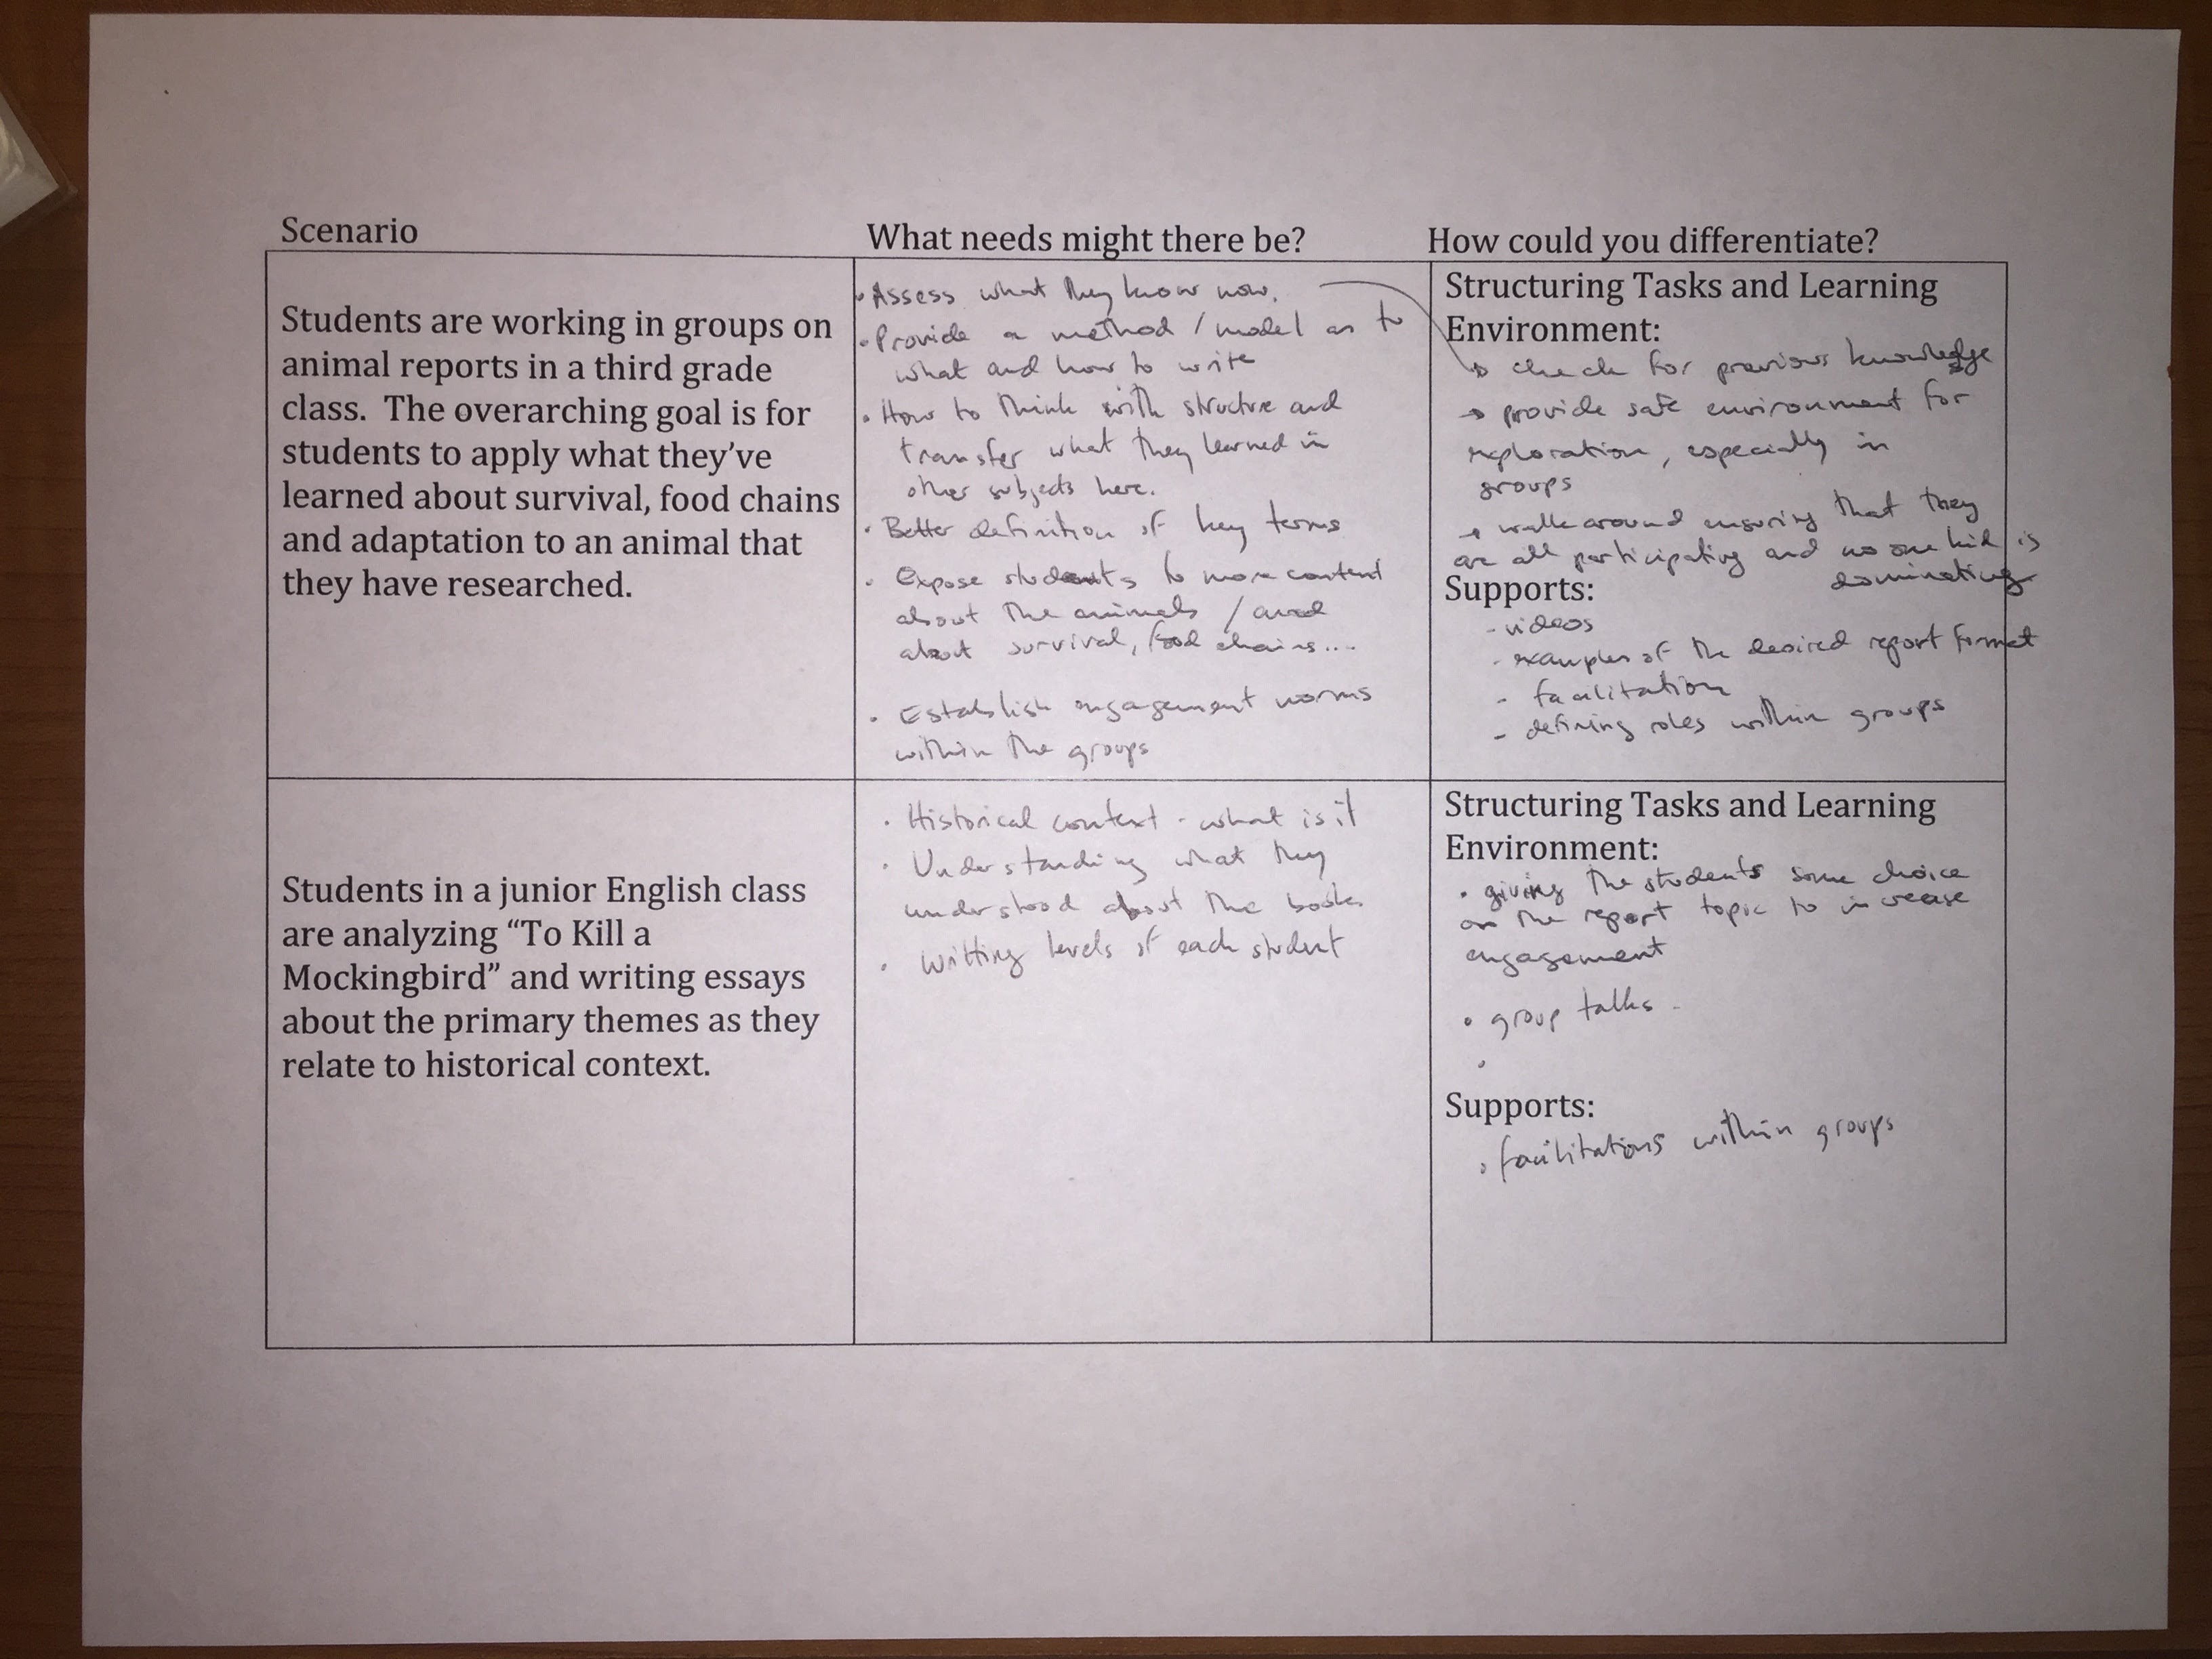 Scenario
What needs might there be?
How could you differentiate?
Students are working in groups on
animal reports in a third grade
class. The overarching goal is for
students to apply what they've
learned about survival, food chains
and adaptation to an animal that
they have researched.
• Assess what they know now.
• Provide a method / model as to
what and how to write
• How to think with structure and
transfer what they learned in
other subjects here.
• Better definition of key terms
• Expose students to more content
about the animals / and
about survival, food chains...
• Establish engagement norms
within the groups
Structuring Tasks and Learning
Environment:
→ check for previous knowledge
→ provide safe environment for
exploration, especially in
groups
→ walk around ensuring that they
are all participating and no one kid is
dominating
Supports:
- videos
- examples of the desired report format
- facilitation
- defining roles within groups
Students in a junior English class
are analyzing “To Kill a
Mockingbird” and writing essays
about the primary themes as they
relate to historical context.
• Historical context - what is it
• Understanding what they
understood about the books
• Writting levels of each student
Structuring Tasks and Learning
Environment:
• giving the students some choice
on the report topic to increase
engagement
• group talks -
•
Supports:
• facilitations within groups